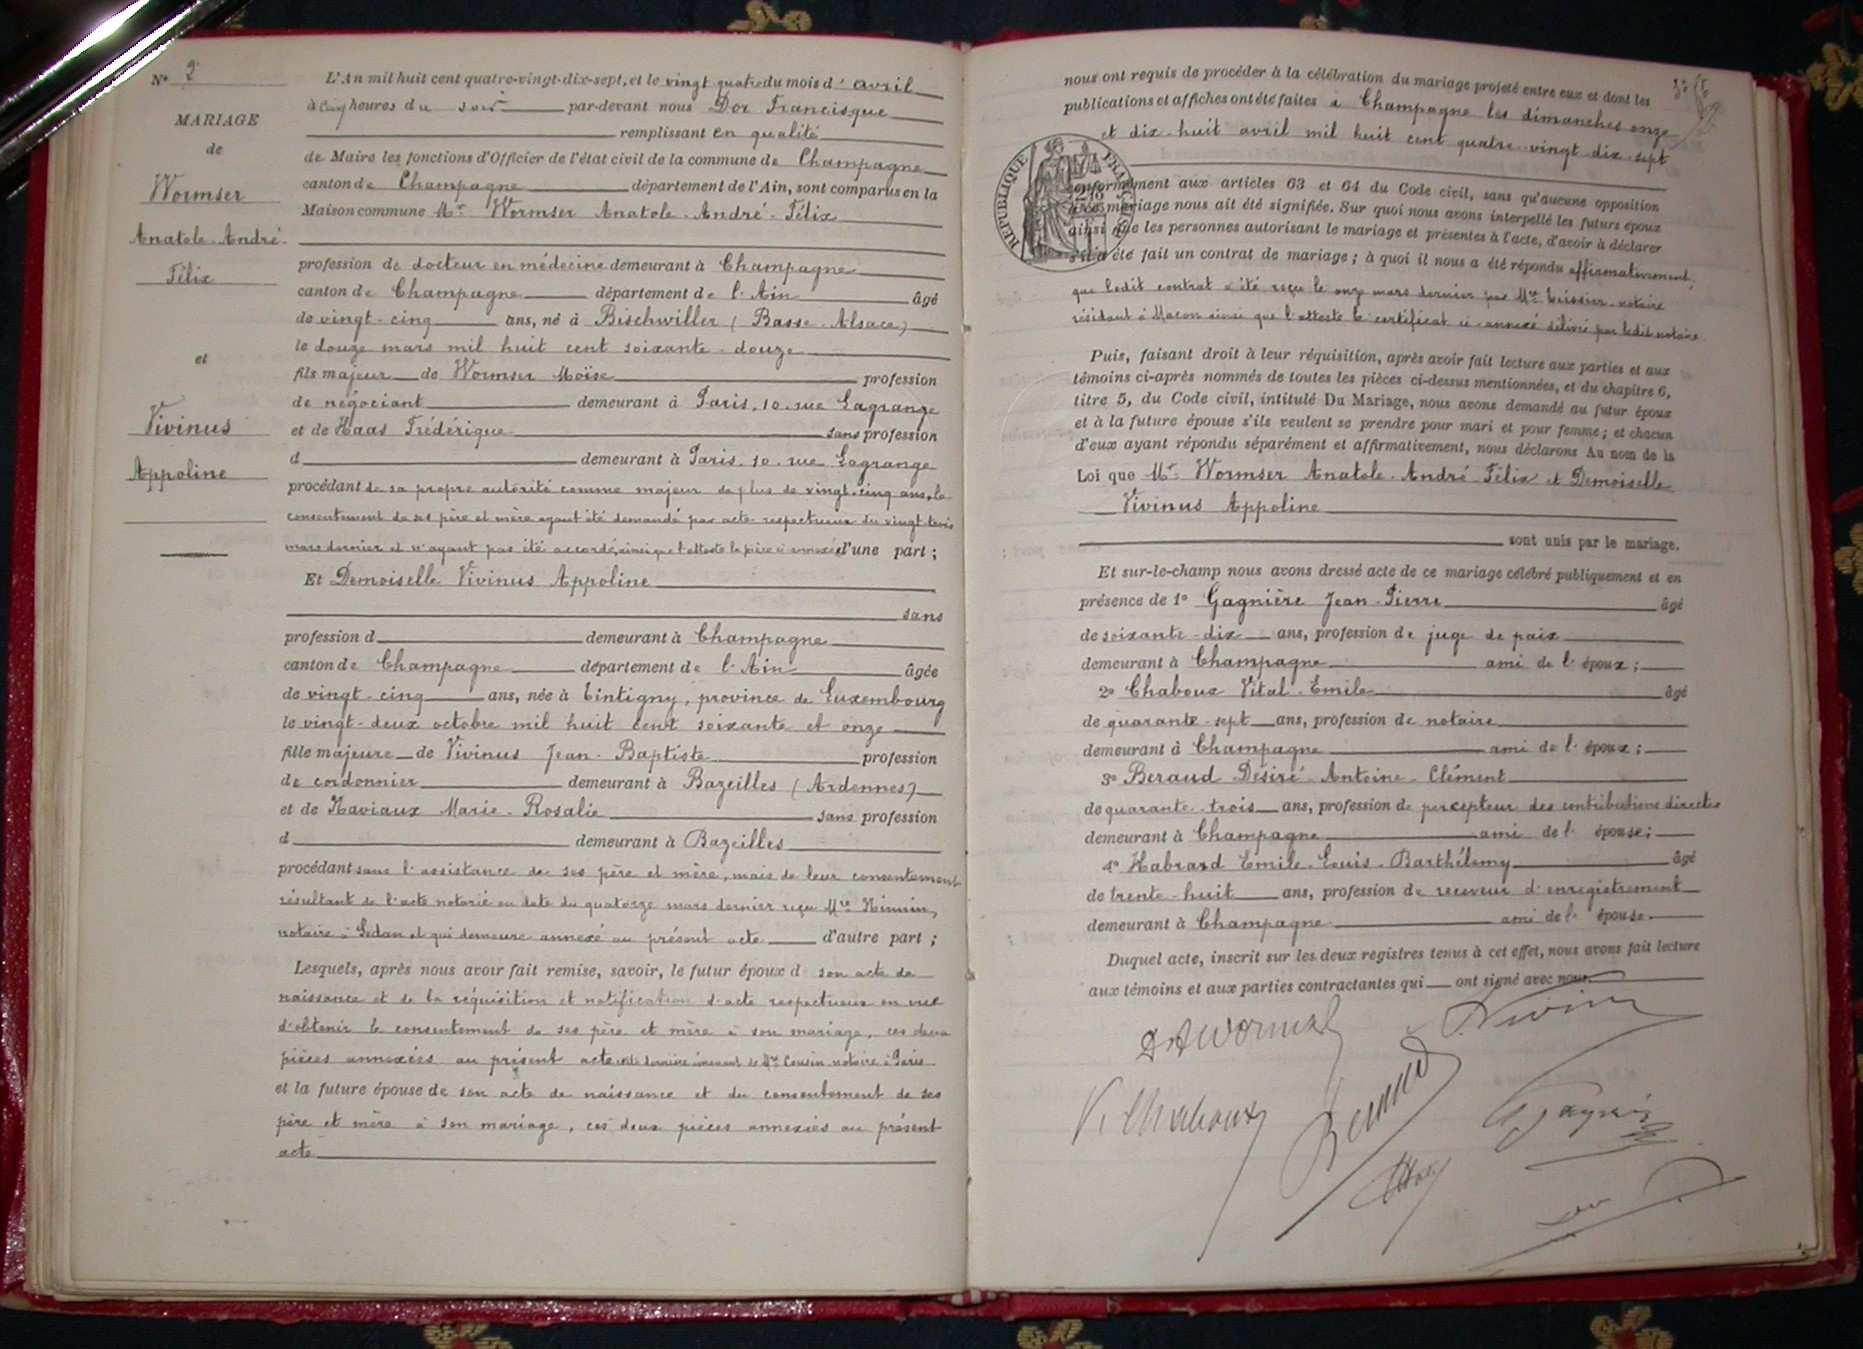 N° 2
MARIAGE
de
Wormser
Anatole-André-
Félix
et
Vivinus
Appoline
L'An mil huit cent quatre-vingt-dix-sept, et le vingt quatre du mois d'avril
à cinq heures du soir par-devant nous Dor Francisque
remplissant en qualité
de Maire les fonctions d'Officier de l'état civil de la commune de Champagne
canton de Champagne département de l'Ain, sont comparus en la
Maison commune Mr Wormser Anatole-André-Félix
profession de docteur en médecine demeurant à Champagne
canton de Champagne département de l'Ain âgé
de vingt-cinq ans, né à Bischwiller (Basse-Alsace)
le douze mars mil huit cent soixante-douze
fils majeur de Wormser Moïse profession
de négociant demeurant à Paris, 10, rue Lagrange
et de Haas Frédérique sans profession
d demeurant à Paris, 10, rue Lagrange
procédant de sa propre autorité comme majeur de plus de vingt-cinq ans, le
consentement de ses père et mère ayant été demandé par acte respectueux du vingt-trois
mars dernier et n'ayant pas été accordé, ainsi que l'atteste la pièce ci-annexée d'une part ;
Et Demoiselle Vivinus Appoline
sans
profession d demeurant à Champagne
canton de Champagne département de l'Ain âgée
de vingt-cinq ans, née à Tintigny, province de Luxembourg
le vingt-deux octobre mil huit cent soixante et onze
fille majeure de Vivinus Jean-Baptiste profession
de cordonnier demeurant à Bazeilles (Ardennes)
et de Naviaux Marie-Rosalie sans profession
d demeurant à Bazeilles
procédant sans l'assistance de ses père et mère, mais de leur consentement
résultant de l'acte notarié en date du quatorze mars dernier reçu Mre
notaire à Sedan et qui demeure annexé au présent acte d'autre part ;
Lesquels, après nous avoir fait remise, savoir, le futur époux d son acte de
naissance et de la réquisition et notification d'acte respectueux en vue
d'obtenir le consentement de ses père et mère à son mariage, ces deux
pièces annexées au présent acte cette dernière émanent de Me Cousin notaire à Paris
et la future épouse de son acte de naissance et du consentement de ses
père et mère à son mariage, ces deux pièces annexées au présent
acte
nous ont requis de procéder à la célébration du mariage projeté entre eux et dont les
publications et affiches ont été faites à Champagne les dimanches onze
et dix-huit avril mil huit cent quatre-vingt dix-sept
RÉPUBLIQUE FRANÇAISE
conformément aux articles 63 et 64 du Code civil, sans qu'aucune opposition
à ce mariage nous ait été signifiée. Sur quoi nous avons interpellé les futurs époux
ainsi que les personnes autorisant le mariage et présentes à l'acte, d'avoir à déclarer
s'il a été fait un contrat de mariage ; à quoi il nous a été répondu affirmativement,
que ledit contrat a été reçu le onze mars dernier par Mre Teissier notaire
résidant à Macon ainsi que l'atteste le certificat ci-annexé délivré par ledit notaire
Puis, faisant droit à leur réquisition, après avoir fait lecture aux parties et aux
témoins ci-après nommés de toutes les pièces ci-dessus mentionnées, et du chapitre 6,
titre 5, du Code civil, intitulé Du Mariage, nous avons demandé au futur époux
et à la future épouse s'ils veulent se prendre pour mari et pour femme ; et chacun
d'eux ayant répondu séparément et affirmativement, nous déclarons Au nom de la
Loi que Mr Wormser Anatole-André-Félix et Demoiselle
Vivinus Appoline
sont unis par le mariage.
Et sur-le-champ nous avons dressé acte de ce mariage célébré publiquement et en
présence de 1° Gagnière Jean-Pierre âgé
de soixante-dix ans, profession de juge de paix
demeurant à Champagne ami de l'époux ;
2° Chaboux Vital-Emile âgé
de quarante-sept ans, profession de notaire
demeurant à Champagne ami de l'époux ;
3° Beraud Désiré-Antoine-Clément
de quarante-trois ans, profession de percepteur des contributions directes
demeurant à Champagne ami de l'épouse ;
4° Habrard Emile-Louis-Barthélemy âgé
de trente-huit ans, profession de receveur d'enregistrement
demeurant à Champagne ami de l'épouse
Duquel acte, inscrit sur les deux registres tenus à cet effet, nous avons fait lecture
aux témoins et aux parties contractantes qui ont signé avec nous.
V. Chaboux
Beraud